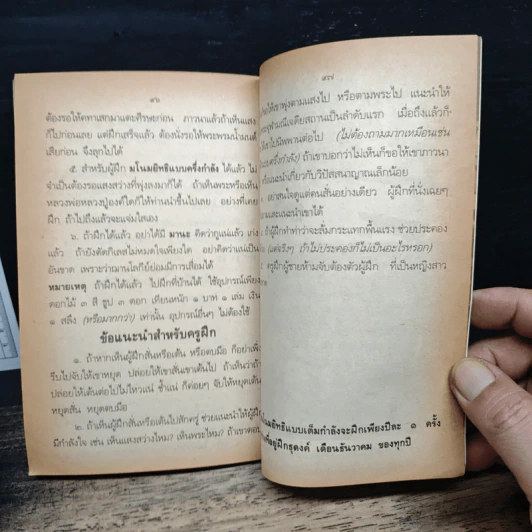 ๑๖
ต้องรอให้คทาเสกมาแตะศีรษะก่อน ภาวนาแล้วถ้าเห็นแสง
ก็ไปก่อนเลย แต่ฝึกเสร็จแล้ว ต้องนั่งรอให้พระพรมน้ำมนต์
เสียก่อน จึงลุกไปได้
๕. สำหรับผู้ฝึก มโนมยิทธิแบบครึ่งกำลัง ได้แล้ว ไม่
จำเป็นต้องรอแสงสว่างที่พุ่งลงมาก็ได้ ถ้าเห็นพระหรือเห็น
หลวงพ่อหลวงปู่องค์ใดก็ให้ท่านนำขึ้นไปเลย อย่าหงีเดย
ฝึก ถ้าไปถึงแล้วจะแจ่มใสเอง
๖. ถ้าฝึกได้แล้ว อย่าได้มี มานะ คิดว่ากูแน่แล้ว เก่ง
แล้ว ถ้ายังตัดกิเลสไม่หมดใจเพียงใด อย่าคิดว่าแน่เป็น
อันขาด เพราะว่าฌานโลกีย์ย่อมมีการเสื่อมได้
หมายเหตุ ถ้าฝึกได้แล้ว ไปฝึกที่บ้านได้ ใช้อุปกรณ์เพียง
ดอกไม้ ๓ สี ธูป ๓ ดอก เทียนหนัก ๑ บาท ๑ เล่ม เงิน
๑ สลึง (หรือมากกว่า) เท่านั้น อุปกรณ์อื่นๆ ไม่ต้องใช้
ข้อแนะนำสำหรับครูฝึก
๑. ถ้าหากเห็นผู้ฝึกสั่นหรือเต้น หรือตบมือ ก็อย่าเพิ่ง
รีบไปจับให้เขาหยุด ปล่อยให้เขาสั่นเขาเต้นไป ถ้าเห็นว่าถ้า
ปล่อยให้เต้นต่อไปไม่ไหวแน่ ช้ำแน่ ก็ค่อยๆ จับให้หยุดเต้น
หยุดสั่น หยุดตบมือ
๒. ถ้าเห็นผู้ฝึกสั่นหรือเต้นไปสักครู่ ช่วยแนะนำให้ผู้ฝึก
มีกำลังใจ เช่น เห็นแสงสว่างไหม? เห็นพระไหม? ถ้าเขาตอบ
๑๗
ให้เขาพุ่งตามแสงไป หรือตามพระไป แนะนำให้
จุฬามณีเจดียสถานเป็นลำดับแรก เมื่อถึงแล้วก็
ไปนิพพานต่อไป (ไม่ต้องถามมากเหมือนเช่น
ครึ่งกำลัง) ถ้าเขาบอกว่าไม่เห็นก็ขอให้เขาภาวนา
แนะนำเกี่ยวกับวิปัสสนาญาณเล็กน้อย
สนใจดูแต่คนสั่นอย่างเดียว ผู้ฝึกที่นั่งเฉยๆ
และแนะนำเขาได้
ผู้ฝึกทำท่าว่าจะล้มกระแทกพื้นแรง ช่วยประคอง
(แต่จริงๆ ถ้าไม่ประคองก็ไม่เป็นอะไรหรอก)
ครูฝึกผู้ชายห้ามจับต้องตัวผู้ฝึก ที่เป็นหญิงสาว
มโนมยิทธิแบบเต็มกำลังจะฝึกเพียงปีละ ๑ ครั้ง
ที่อยู่ฝึกธุดงค์ เดือนธันวาคม ของทุกปี